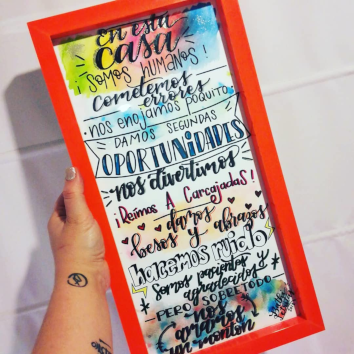 en esta
casa
¡SOMOS HUMANOS!
cometemos
errores
nos enojamos poquito
DAMOS SEGUNDAS
OPORTUNIDADES
nos divertimos
¡Reimos A Carcajadas!
damos
besos y abrazos
hacemos ruido
Somos pacientes y
agradecidos
PERO SOBRETODO
nos
amamos
un montón